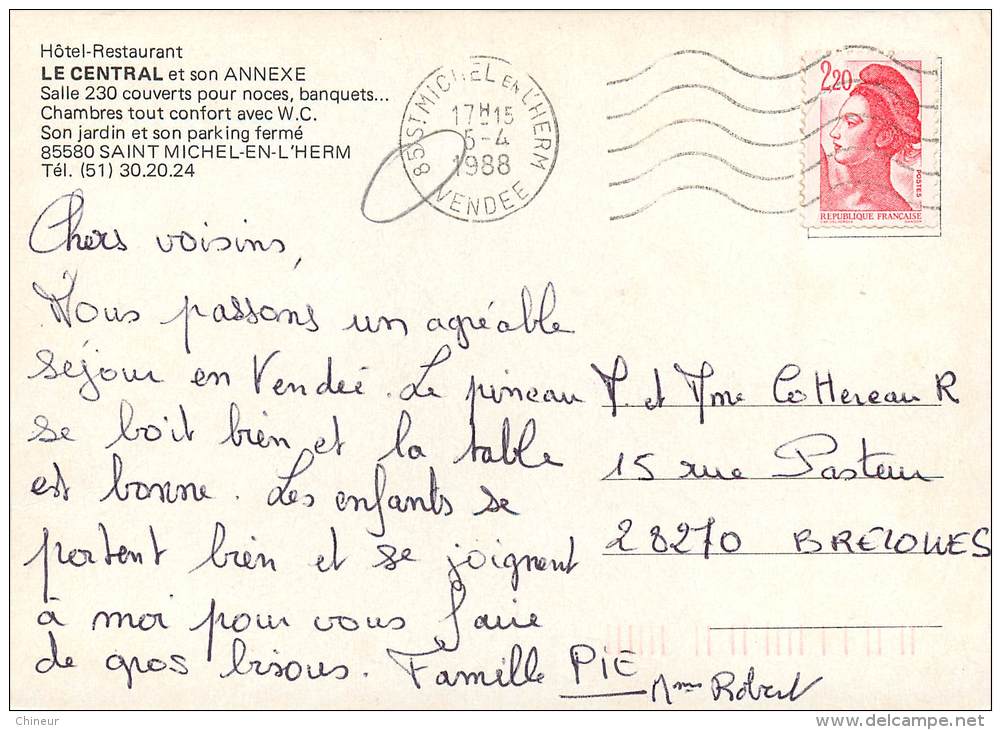 Hôtel-Restaurant
LE CENTRAL et son ANNEXE
Salle 230 couverts pour noces, banquets...
Chambres tout confort avec W.C.
Son jardin et son parking fermé
85580 SAINT MICHEL-EN-L'HERM
Tél. (51) 30.20.24
85 ST MICHEL EN L'HERM
17H15
5-4
1988
VENDEE
2,20
POSTES
REPUBLIQUE FRANÇAISE
Chers voisins,
Nous passons un agréable
séjour en Vendée. Le pineau
se boit bien et la table
est bonne. Les enfants se
portent bien et se joignent
à moi pour vous faire
de gros bisous. Famille PIE
Mme Robert
M. et Mme Cottereau R
15 rue Pasteur
28270 BREZOLLES
Chineur
www.delcampe.net